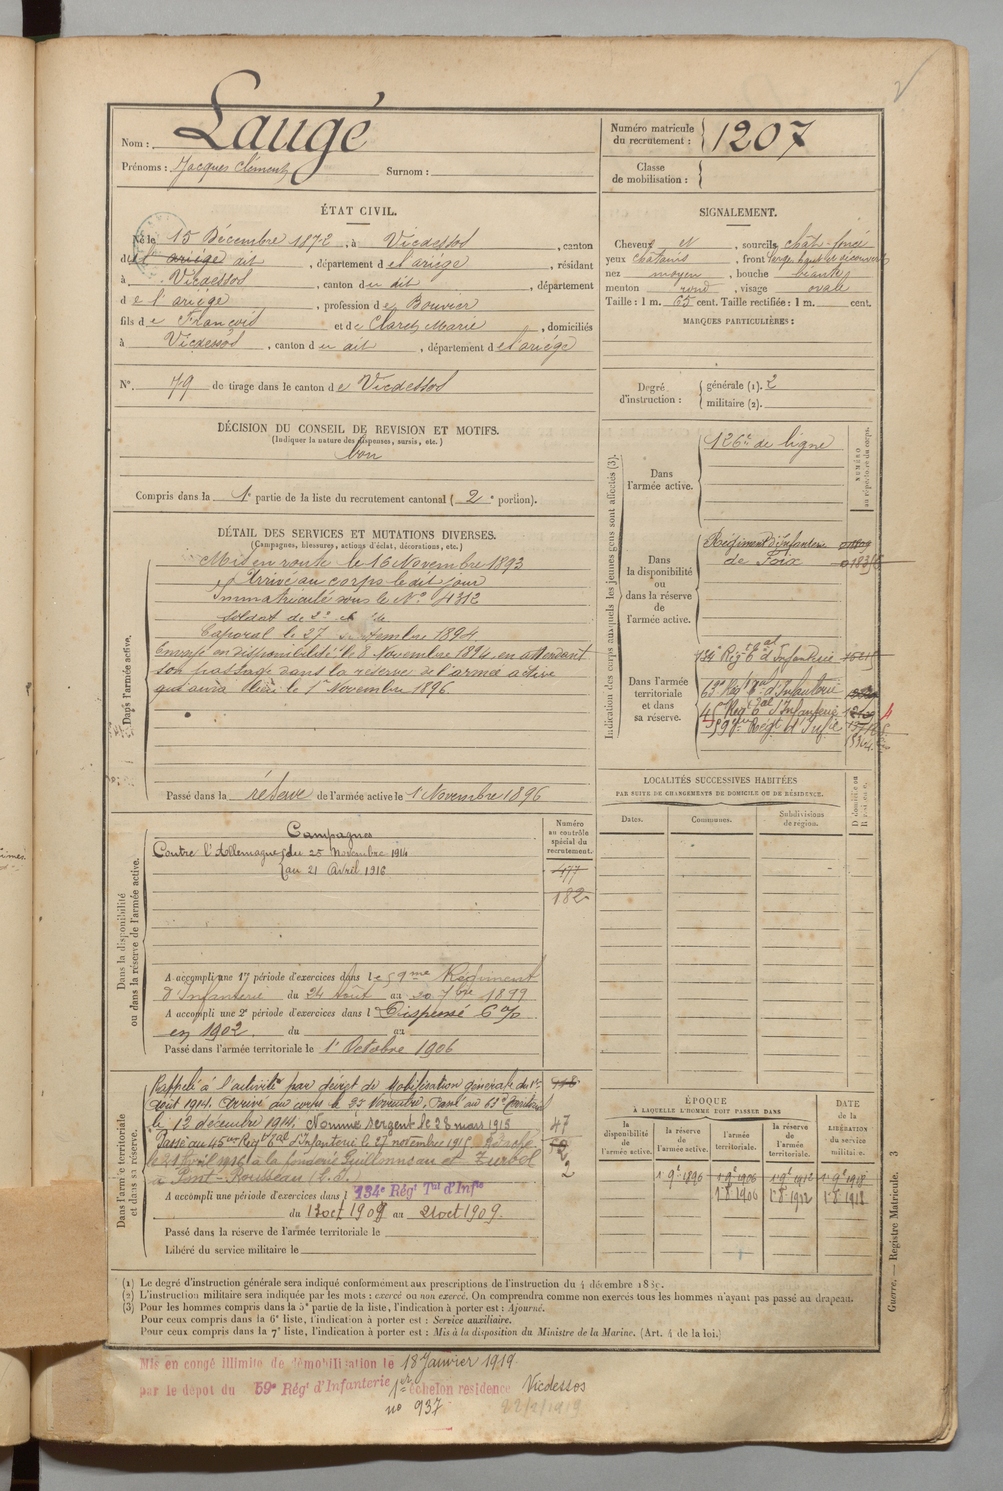 Nom : Laugé
Prénoms : Jacques Clément Surnom :
Numéro matricule du recrutement : 1207
Classe de mobilisation :
ÉTAT CIVIL.
Né le 15 Décembre 1872, à Vicdessos, canton
de l'ariége dit, département de l'ariége, résidant
à Vicdessos, canton du dit, département
de l'ariége, profession de Bouvier
fils de François et de Claret Marie, domiciliés
à Vicdessos, canton du dit, département de l'ariége
N° 79 de tirage dans le canton de Vicdessos
SIGNALEMENT.
Cheveux N, sourcils chât-foncé
yeux châtains, front large haut et découvert
nez moyen, bouche béante
menton rond, visage ovale
Taille : 1 m. 65 cent. Taille rectifiée : 1 m. cent.
MARQUES PARTICULIÈRES :
Degré d'instruction : générale (1). 2
militaire (2).
DÉCISION DU CONSEIL DE REVISION ET MOTIFS.
(Indiquer la nature des dispenses, sursis, etc.)
bon
Compris dans la 1e partie de la liste du recrutement cantonal (2e portion).
DÉTAIL DES SERVICES ET MUTATIONS DIVERSES.
(Campagnes, blessures, actions d'éclat, décorations, etc.)
Dans l'armée active.
Mis en route le 16 Novembre 1893
Arrivé au corps le dit jour
Immatriculé sous le N° 4312
Soldat de 2e cl
Caporal le 27 septembre 1894
Envoyé en disponibilité le 8 Novembre 1894 en attendant
son passage dans la réserve de l'armée active
qui aura lieu le 1er Novembre 1896.
Passé dans la réserve de l'armée active le 1 Novembre 1896
Indication des corps auxquels les jeunes gens sont affectés (3).
NUMÉRO au répertoire du corps.
Dans l'armée active.
126e de ligne
Dans la disponibilité ou dans la réserve de l'armée active.
Régiment d'Infanterie
de Foix
Dans l'armée territoriale et dans sa réserve.
134e Régt tal d'Infanterie
63e Régt tal d'Infanterie
45e Régt tal d'Infanterie
59e Régt d'Infie
LOCALITÉS SUCCESSIVES HABITÉES
PAR SUITE DE CHANGEMENTS DE DOMICILE OU DE RÉSIDENCE.
Dates. Communes. Subdivisions de région. D domicile ou R résidence.
Dans la disponibilité ou dans la réserve de l'armée active.
Numéro au contrôle spécial du recrutement.
477
182
Campagnes
Contre l'Allemagne du 25 Novembre 1914
au 21 Avril 1916
A accompli une 1e période d'exercices dans le 59me Régiment
d'Infanterie du 24 Août au 20 7bre 1899
A accompli une 2e période d'exercices dans l Dispensé 6 %
en 1902 du au
Passé dans l'armée territoriale le 1er Octobre 1906
Dans l'armée territoriale et dans sa réserve.
Rappelé à l'activité par décret de Mobilisation générale du 1er
Août 1914. Arrivé au corps le 25 Novembre, Passé au 63e Territorial
le 12 décembre 1914. Nommé sergent le 28 mars 1915
Passé au 45me Régt tal d'Infanterie le 27 novembre 1915 Détaché
le 21 Avril 1916 à la fonderie Guillouneau et
à Pont-Rousseau (L. I.
47
A accompli une période d'exercices dans l 134e Régt Tal d'Infie
du 13 oct 1909 au 21 oct 1909.
Passé dans la réserve de l'armée territoriale le
Libéré du service militaire le
ÉPOQUE
À LAQUELLE L'HOMME DOIT PASSER DANS
la disponibilité de l'armée active. la réserve de l'armée active. l'armée territoriale. la réserve de l'armée territoriale.
DATE de la LIBÉRATION du service militaire.
1 9e 1896 1 9e 1906 1 9e 1912 1 9e 1918
1 8 1906 1 8 1912 1 8 1918
Guerre. — Registre Matricule. 3
(1) Le degré d'instruction générale sera indiqué conformément aux prescriptions de l'instruction du 4 décembre 1889.
(2) L'instruction militaire sera indiquée par les mots : exercé ou non exercé. On comprendra comme non exercés tous les hommes n'ayant pas passé au drapeau.
(3) Pour les hommes compris dans la 5e partie de la liste, l'indication à porter est : Ajourné.
Pour ceux compris dans la 6e liste, l'indication à porter est : Service auxiliaire.
Pour ceux compris dans la 7e liste, l'indication à porter est : Mis à la disposition du Ministre de la Marine. (Art. 4 de la loi.)
Mis en congé illimité de démobilisation le 18 Janvier 1919
par le dépôt du 59e Régt d'Infanterie 1er échelon résidence Vicdessos
no 937 22/2/1919